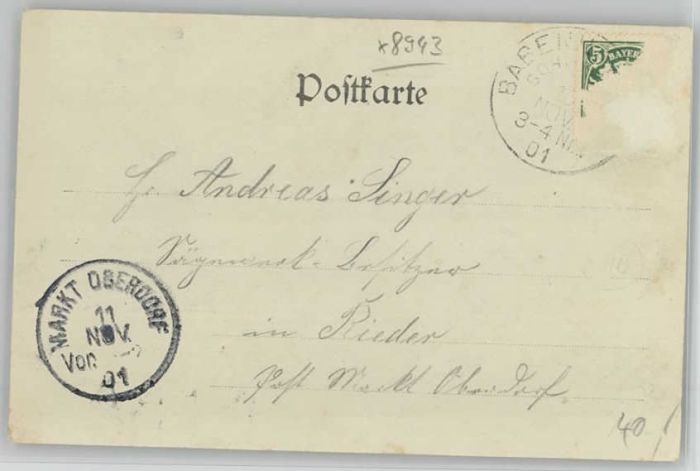 x8943
Postkarte
5 BAYE
BABEN
NOV
3-4 NM
01
Hr. Andreas Singer
Sägewerk-Besitzer
in Rieder
Post Markt Oberdorf
MARKT OBERDORF
11
NOV.
Vor
01
40,